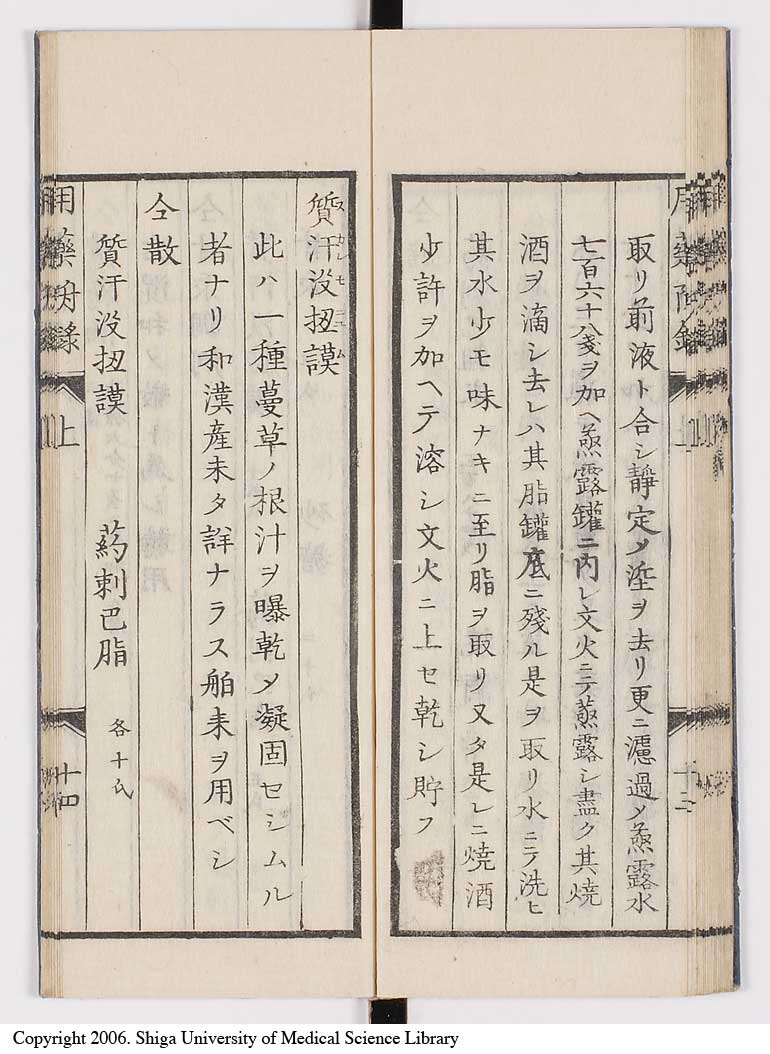 取リ前液ト合シ靜定メ滓ヲ去リ更ニ濾過メ蒸露水
七百六十八戔ヲ加ヘ蒸露罐ニ内レ文火ニテ蒸露シ盡ク其焼
酒ヲ滴シ去レハ其脂罐底ニ殘ル是ヲ取リ水ニテ洗ヒ
其水少モ味ナキニ至リ脂ヲ取リ又タ是レニ焼酒
少許ヲ加ヘテ溶シ文火ニ上セ乾シ貯フ
質汗没扭謨
此ハ一種蔓草ノ根汁ヲ曝乾メ凝固セシムル
者ナリ和漢産未タ詳ナラス舶来ヲ用ベシ
仝散
質汗没扭謨 葯刺巴脂 各十氏
用藥附録 上 十四
Copyright 2006. Shiga University of Medical Science Library